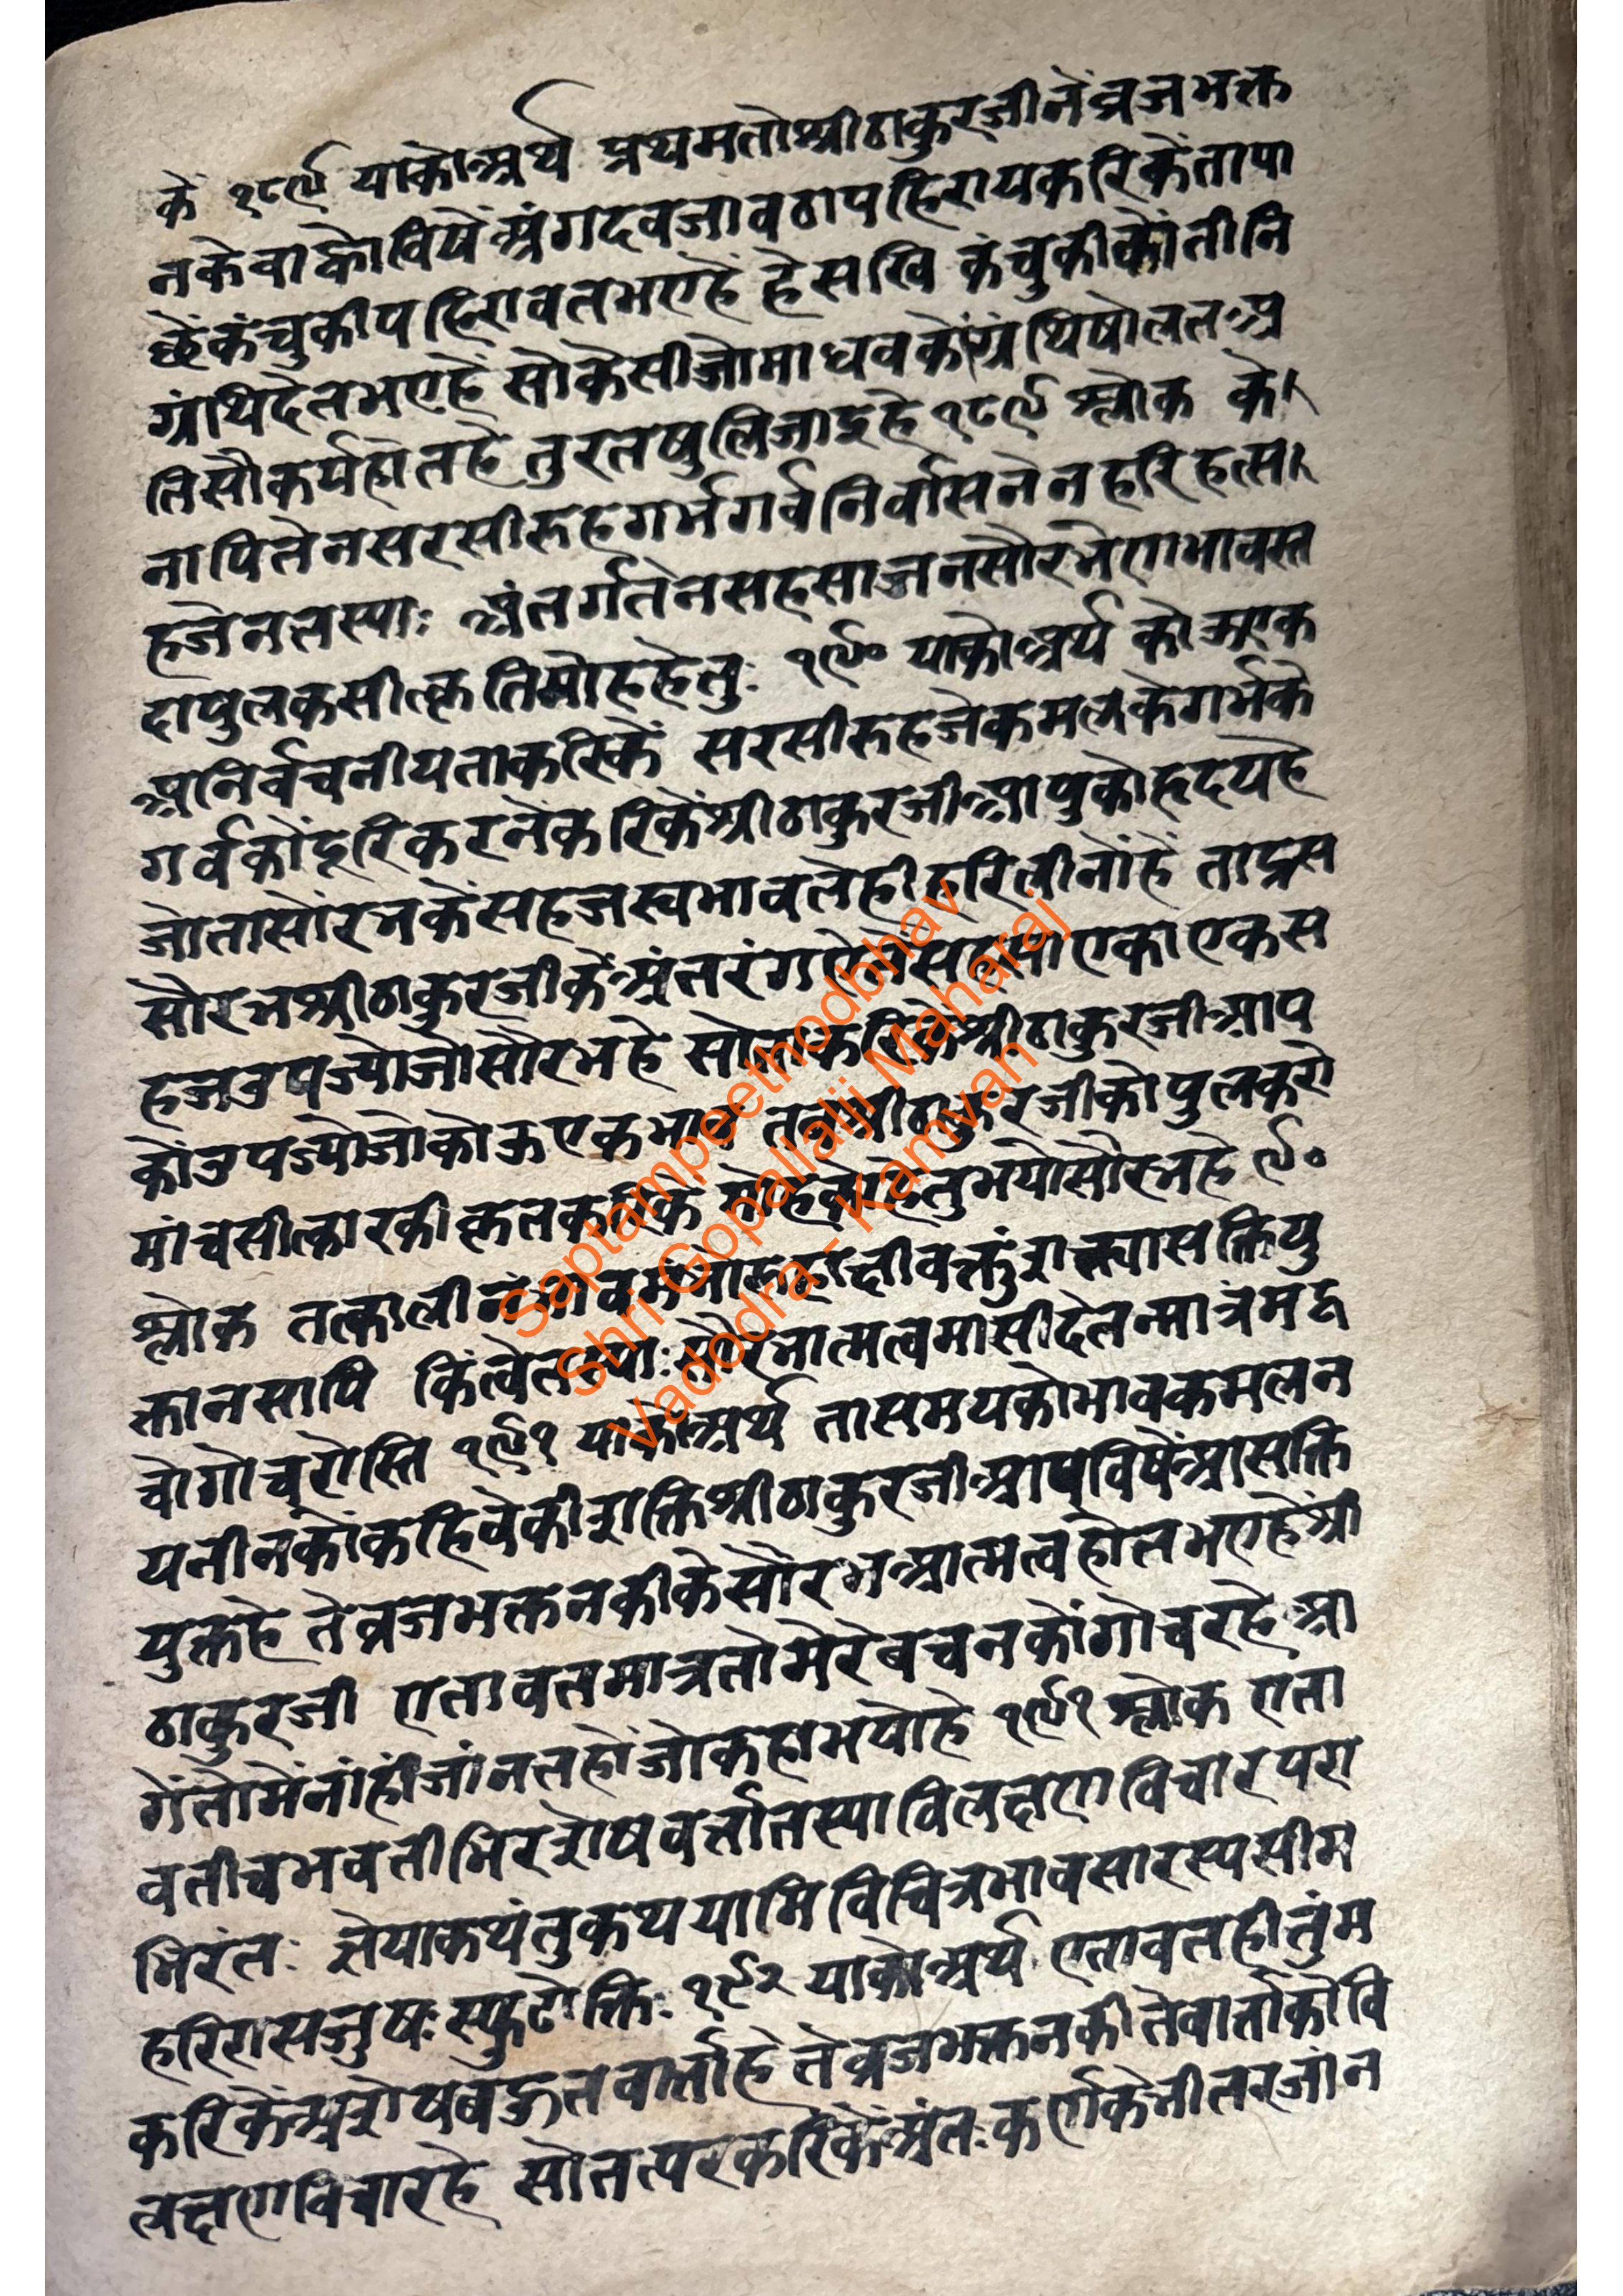 कें १८९ याकोअर्थ प्रथमतोश्रीठाकुरजीनेंव्रजभक्त
नकेवाकोविषेंअंगदवजावठापहिरायकरिकेंतापा
छेंकंचुकीपहिरावतभएहें हेसखि कंचुकीकोंतीनि
ग्रंथिदेतभएहें सोकेसीजोमाधवकोंग्रंथिषोलतअ
तिसौकर्यहोतहे तुरतषुलिजाइहे १८९ श्लोक के
नापितेनसरसीरुहगर्भगर्वनिर्वासनेनहरिहृत्स
हजेनतस्याः अंतर्गतेनसहसाजनसौरभेणभावस्त
दापुलकसीत्कृतिमोहहेतुः १९० याकोअर्थ कोऊएक
अनिर्वचनीयताकरिकें सरसीरुहजेकमलकेगर्भके
गर्वकोंदूरिकरनेंकरिकेंश्रीठाकुरजीआपुकोहृदयहे
जोतासोंरभकेंसहजस्वभावतेहीहरिलीनोंहें ताद्रस
सौरभश्रीठाकुरजीकेंअंतरंगऐसेंसहसाएकाएकस
हजउपज्योजोसौरभहे सोताकरिकेंश्रीठाकुरजीआप
कोंउपज्योजोकोऊएकभाव तबश्रीठाकुरजीकोपुलकरो
मांचसीत्कारकीत्कृतकरिकें मोहकोहेतुभयोसौरभहे ९०
श्लोक तत्कालीनंभावमंभोरुहाक्षीवक्तुंशक्त्यासक्तियु
क्तानसापि किंत्वेतस्याःसौरभात्मत्वमासीदेतन्मात्रंमद्व
चोगोचरोस्ति १९१ याकोअर्थ तासमयकोभावकमलन
यनीनकोंकहिवेकीशक्तिश्रीठाकुरजीआपविषेंआसक्ति
युक्तहे तेव्रजभक्तनकीकेसौरभआत्मत्वहोतभएहेंश्री
ठाकुरजी एतावतमात्रतोमेरेबचनकोंगोचरहे आ
गेंतोमेंनांहींजांनतहोंजोकहाभयोहे १९१ श्लोक एता
वतीचभवतीभिरशेषवर्तातस्याविलक्षणविचारपरा
भिरंतः ज्ञेयाकथंतुकथयामिविचित्रभावसारस्यसीम
हरिरासजुषःस्फुटोक्तिः १९२ याकोअर्थ एतावतहीतुंम
करिकेंअशेषबहुतवार्ताहे तेव्रजभक्तनकीतेवार्ताकोवि
लक्षणविचारहे सोतत्परकरिकेंअंतःकर्णकेभीतरजांन
Saptampeethodbhav
Shri Gopallalji Maharaj
Vadodra - Kamvan